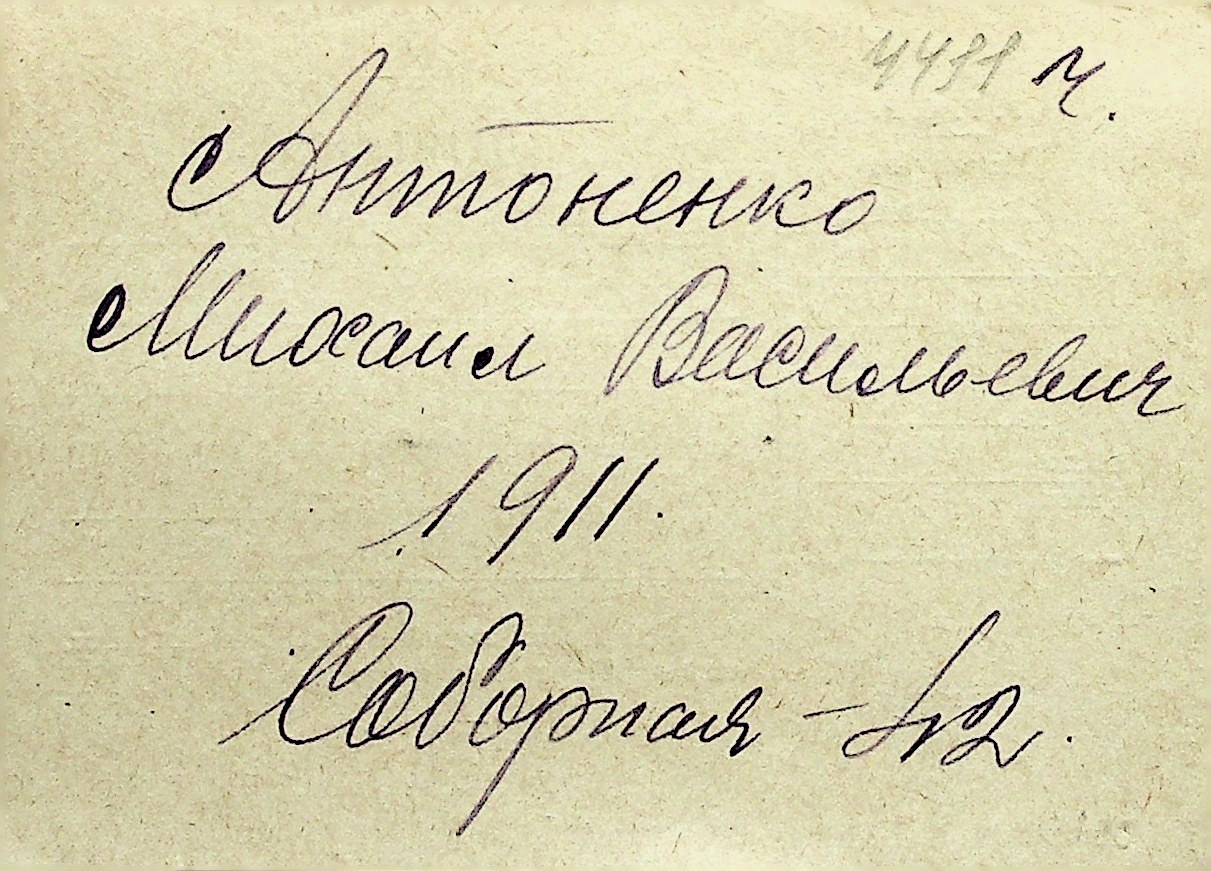 ч.
Антоненко
Михаил Васильевич
1911.
Соборная - 42.